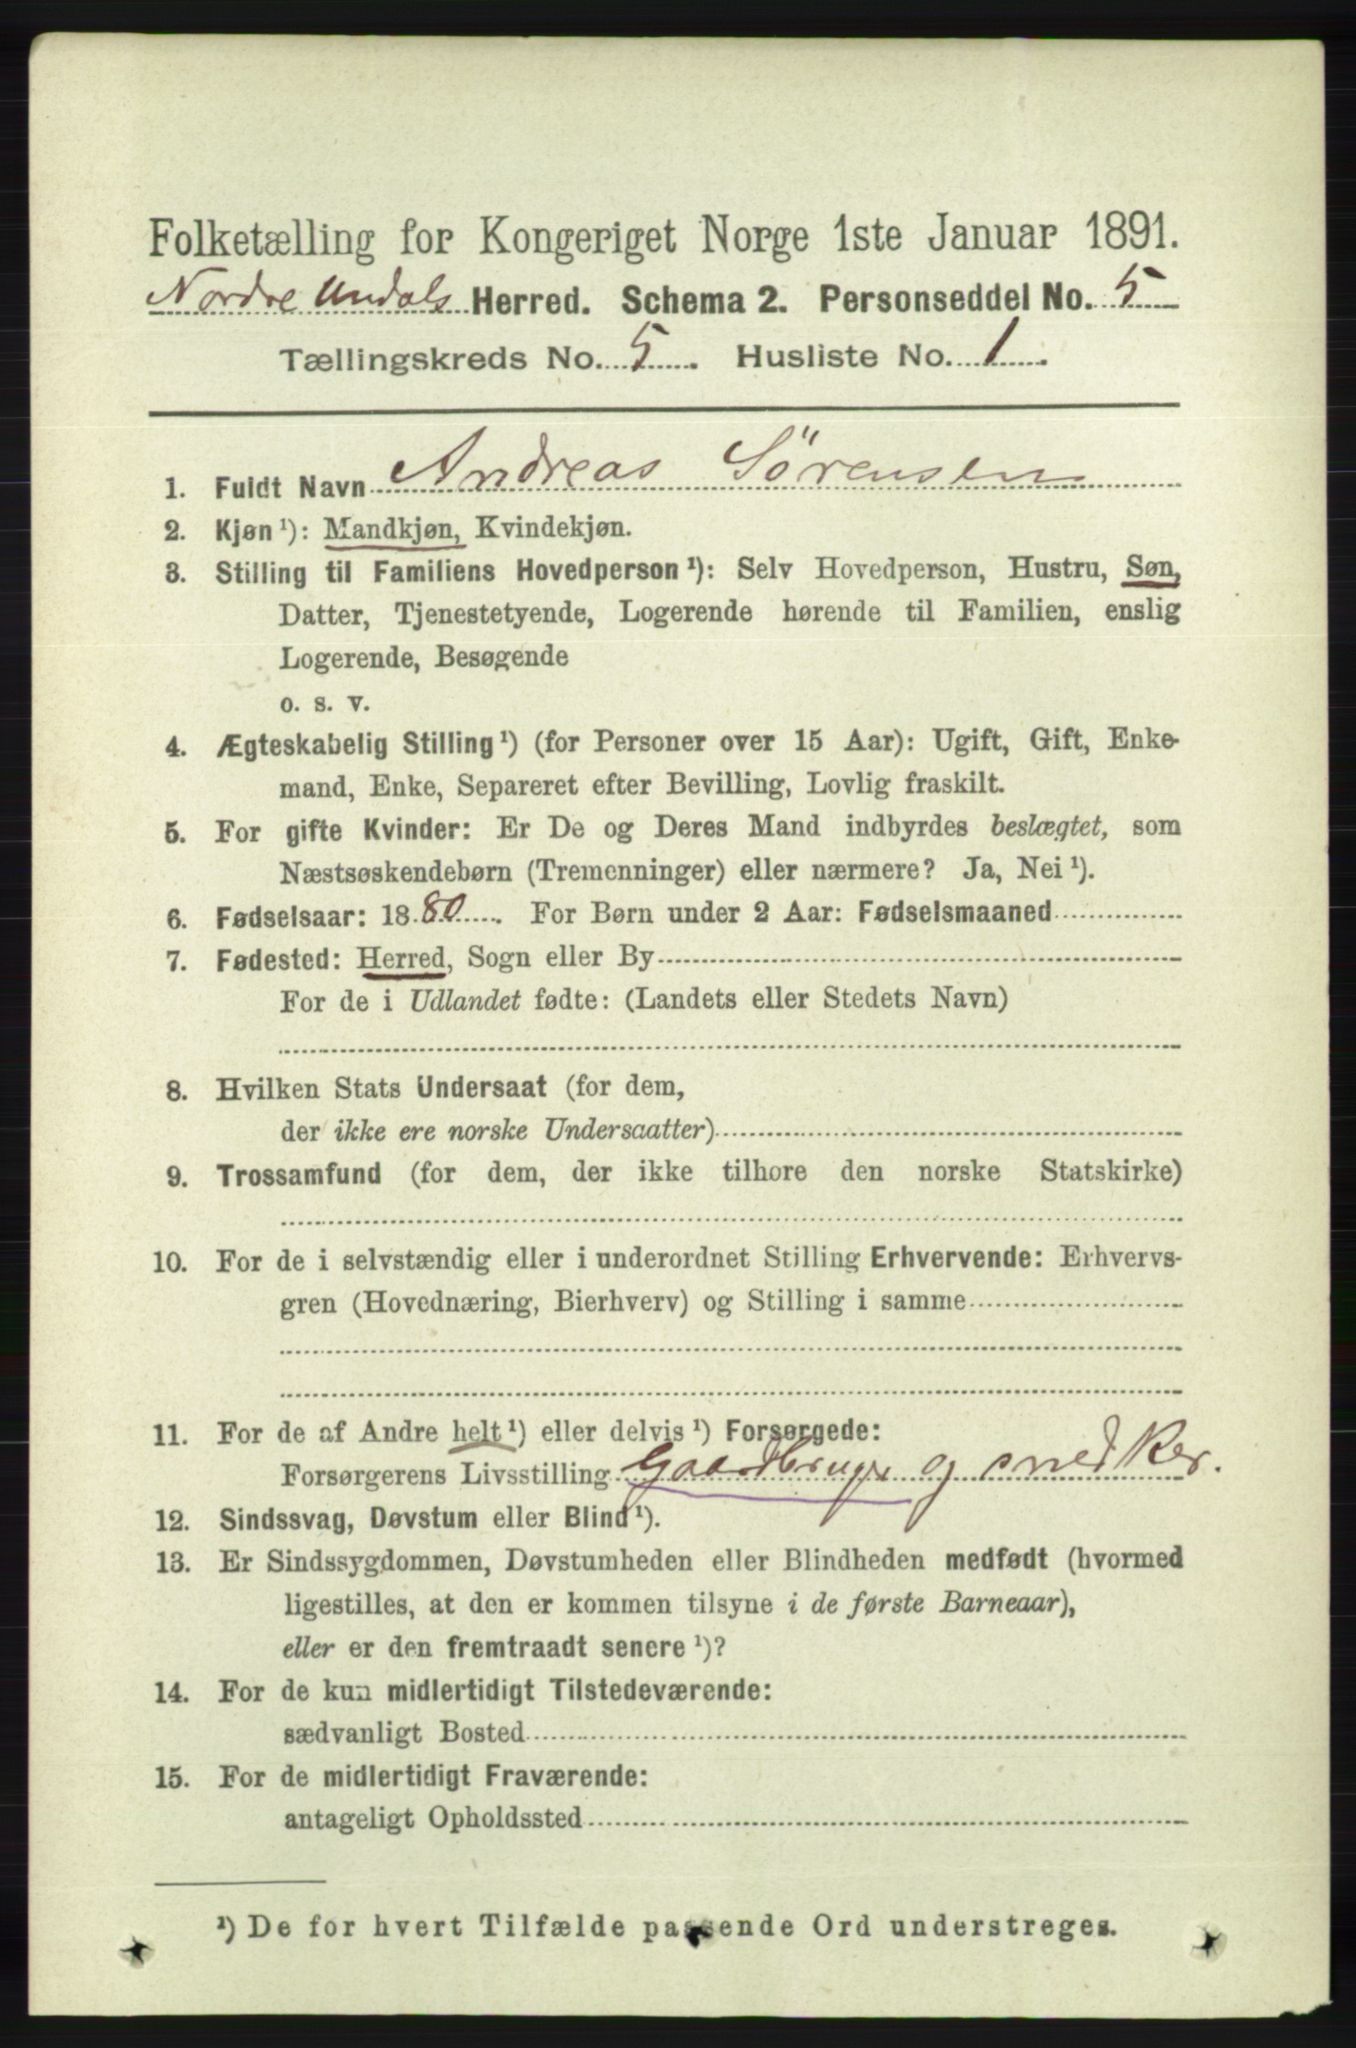 Folketælling for Kongeriget Norge 1ste Januar 1891.
Nordre Undals Herred. Schema 2. Personseddel No. 5
Tællingskreds No. 5. Husliste No. 1.
1. Fuldt Navn Andreas Sörensen
2. Kjøn¹): Mandkjøn, Kvindekjøn.
3. Stilling til Familiens Hovedperson¹): Selv Hovedperson, Hustru, Søn,
Datter, Tjenestetyende, Logerende hørende til Familien, enslig
Logerende, Besøgende
o. s. v.
4. Ægteskabelig Stilling¹) (for Personer over 15 Aar): Ugift, Gift, Enke-
mand, Enke, Separeret efter Bevilling, Lovlig fraskilt.
5. For gifte Kvinder: Er De og Deres Mand indbyrdes beslægtet, som
Næstsøskendebørn (Tremenninger) eller nærmere? Ja, Nei¹).
6. Fødselsaar: 1880. For Børn under 2 Aar: Fødselsmaaned
7. Fødested: Herred, Sogn eller By
For de i Udlandet fødte: (Landets eller Stedets Navn)
8. Hvilken Stats Undersaat (for dem,
der ikke ere norske Undersaatter)
9. Trossamfund (for dem, der ikke tilhøre den norske Statskirke)
10. For de i selvstændig eller i underordnet Stilling Erhvervende: Erhvervs-
gren (Hovednæring, Bierhverv) og Stilling i samme
11. For de af Andre helt¹) eller delvis¹) Forsørgede:
Forsørgerens Livsstilling Gaardbruger og snedker.
12. Sindssvag, Døvstum eller Blind¹).
13. Er Sindssygdommen, Døvstumheden eller Blindheden medfødt (hvormed
ligestilles, at den er kommen tilsyne i de første Barneaar),
eller er den fremtraadt senere¹)?
14. For de kun midlertidigt Tilstedeværende:
sædvanligt Bosted
15. For de midlertidigt Fraværende:
antageligt Opholdssted
¹) De for hvert Tilfælde passende Ord understreges.